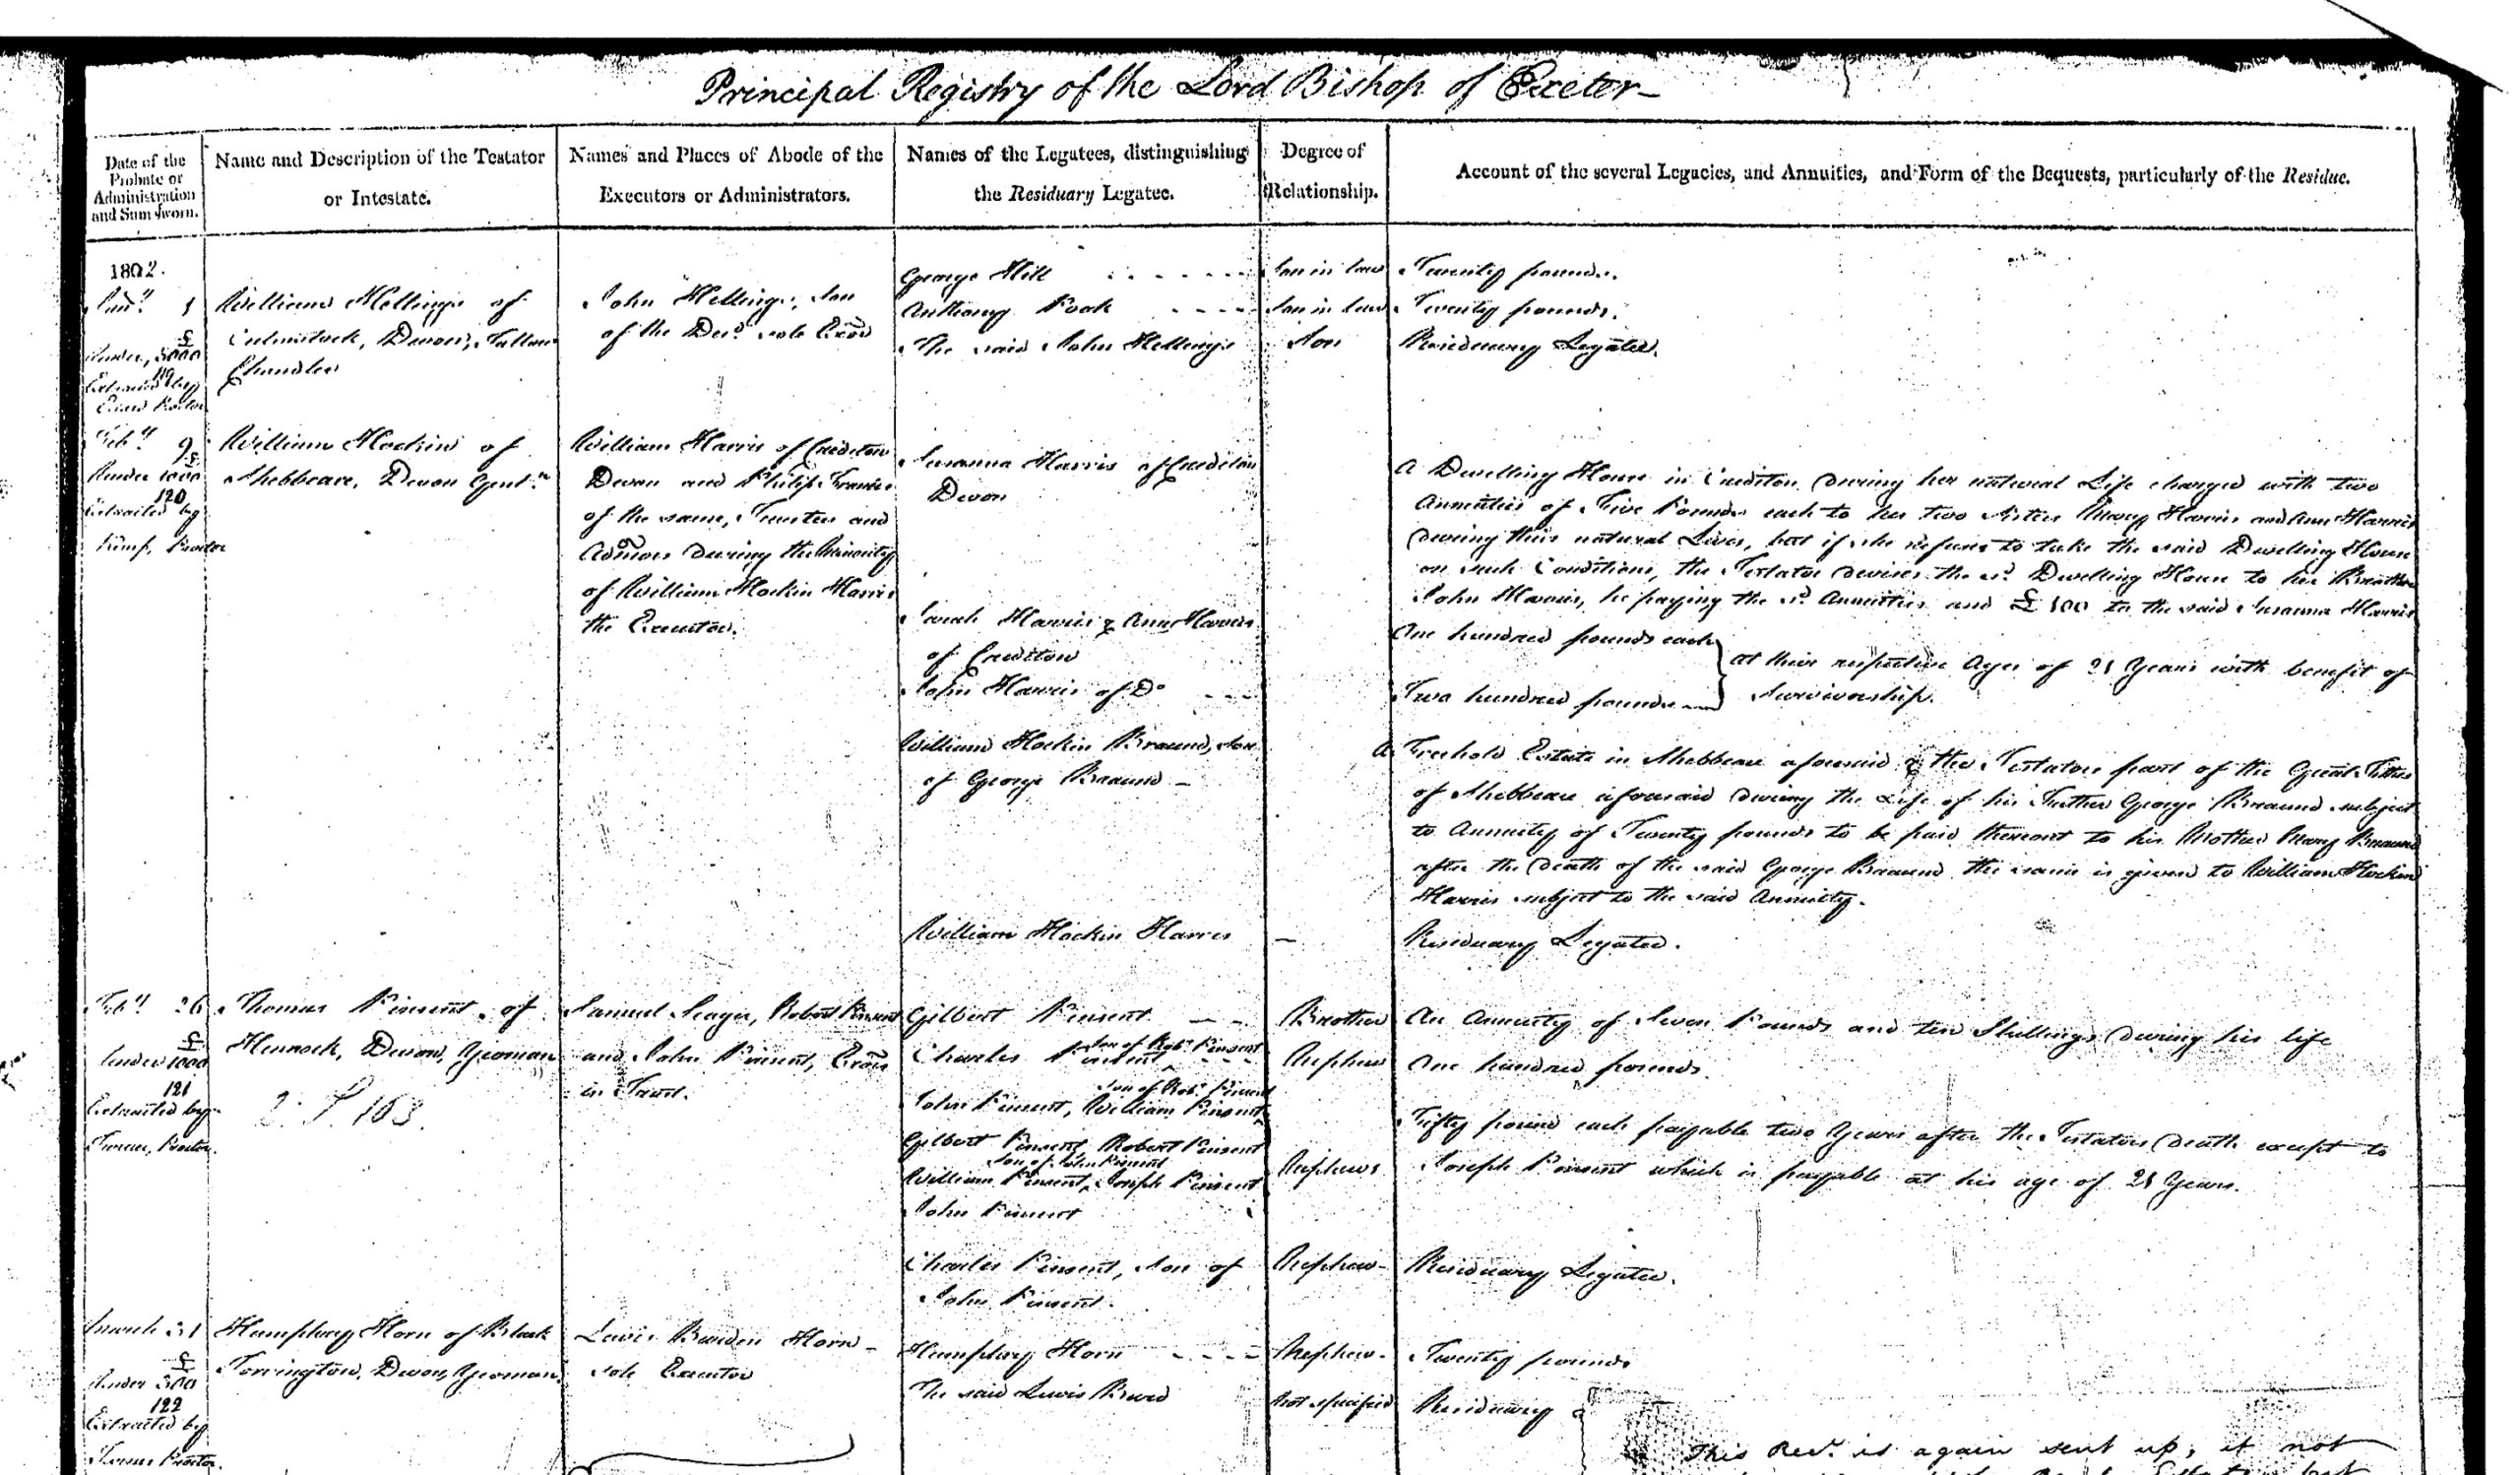 Principal Registry of the Lord Bishop of Exeter
Date of the
Probate or
Administration
and Sum Sworn.
Name and Description of the Testator
or Intestate.
Names and Places of Abode of the
Executors or Administrators.
Names of the Legatees, distinguishing
the Residuary Legatee.
Degree of
Relationship.
Account of the several Legacies, and Annuities, and Form of the Bequests, particularly of the Residue.
1802.
Jany 1
Under £5000
119
Extracted by
Proctor
William Hellings of
Culmstock, Devon, Tallow
Chandler
John Hellings, Son
of the Decd sole Exor
George Hill
Son in law
Twenty pounds.
Anthony Pook
Son in law
Twenty pounds.
The said John Hellings
Son
Residuary Legatee.
Feby 9
Under £1000
120
Extracted by
Proctor
William Hockin of
Shebbeare, Devon Gentn
William Harris of Crediton
Devon and Philip Francis
of the same, Trustees and
Admors during the Minority
of William Hockin Harris
the Executor.
Susanna Harris of Crediton
Devon
A Dwelling House in Crediton during her natural Life charged with two
Annuities of Five Pounds each to her two Sisters Mary Harris and Ann Harris
during their natural Lives, but if she refuses to take the said Dwelling House
on such Conditions, the Testator devises the sd Dwelling House to her Brother
John Harris, he paying the sd Annuities and £100 to the said Susanna Harris
Sarah Harris & Ann Harris
of Crediton
One hundred pounds each
John Harris of Do
Two hundred pounds
at their respective Ages of 21 Years with benefit of
Survivorship.
William Hockin Braund, Son
of George Braund
A Freehold Estate in Shebbeare aforesaid & the Testators part of the Great Tithes
of Shebbeare aforesaid during the Life of his Father George Braund subject
to Annuity of Twenty pounds to be paid thereout to his Mother Mary Braund
after the Death of the said George Braund the same is given to William Hockin
Harris subject to the said Annuity.
William Hockin Harris
Residuary Legatee.
Feby 26
Under £1000
121
Extracted by
Turner, Proctor.
Thomas Pinsent of
Hennock, Devon, Yeoman
Samuel Seager, Robert Pinsent
and John Pinsent, Exors
in Trust.
Gilbert Pinsent
Brother
An Annuity of Seven Pounds and ten Shillings during his life
Charles Pinsent son of Robt Pinsent
Nephew
One hundred pounds.
John Pinsent, William Pinsent son of Robt Pinsent
Gilbert Pinsent, Robert Pinsent
William Pinsent son of John Pinsent, Joseph Pinsent
John Pinsent
Nephews
Fifty pound each payable two Years after the Testators Death except to
Joseph Pinsent which is payable at his age of 21 Years.
Charles Pinsent, Son of
John Pinsent.
Nephew
Residuary Legatee.
March 31
Under £300
122
Extracted by
Proctor.
Humphry Horn of Black
Torrington, Devon, Yeoman
Lewis Harden Horn
sole Executor
Humphry Horn
Nephew
Twenty pounds
The said Lewis
Not specified
Residuary
This Resy is again sent up, it not